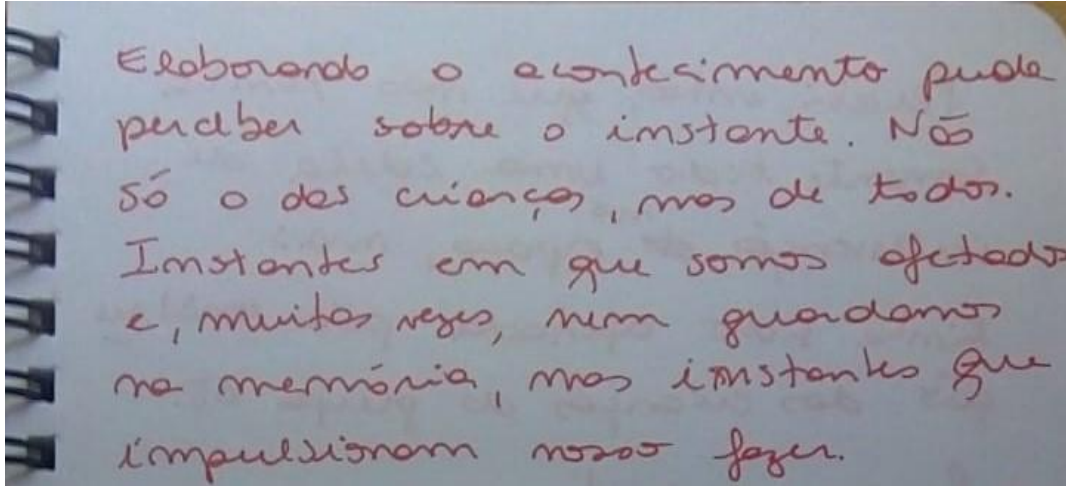 Elaborando o acontecimento pude
perceber sobre o instante. Não
só o das crianças, mas de todos.
Instantes em que somos afetados
e, muitas vezes, nem guardamos
na memória, mas instantes que
impulsionam nosso fazer.